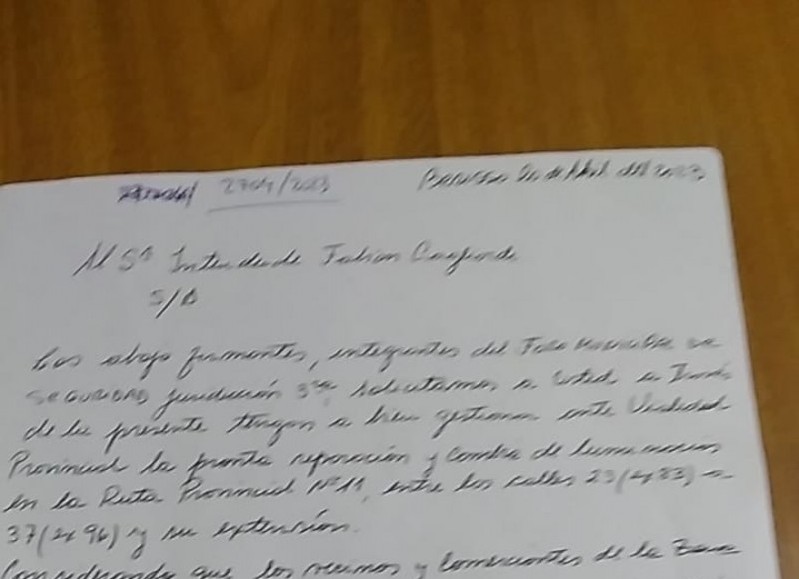 27/04/2023
Berisso 20 de Abril del 2023
Al Sr Intendente Fabian Cagliardi
S/D
Los abajo firmantes, integrantes del Foro Municipal de
SEGURIDAD jurisdicción 3ra, solicitamos a Usted a Través
de la presente tengan a bien gestionar ante Vialidad
Provincial la pronta reparación y cambio de luminarias
en la Ruta Provincial Nº 11, entre las calles 23 (
37 (ex 96) y su extensión.
Considerando que los vecinos y comerciantes de la zona